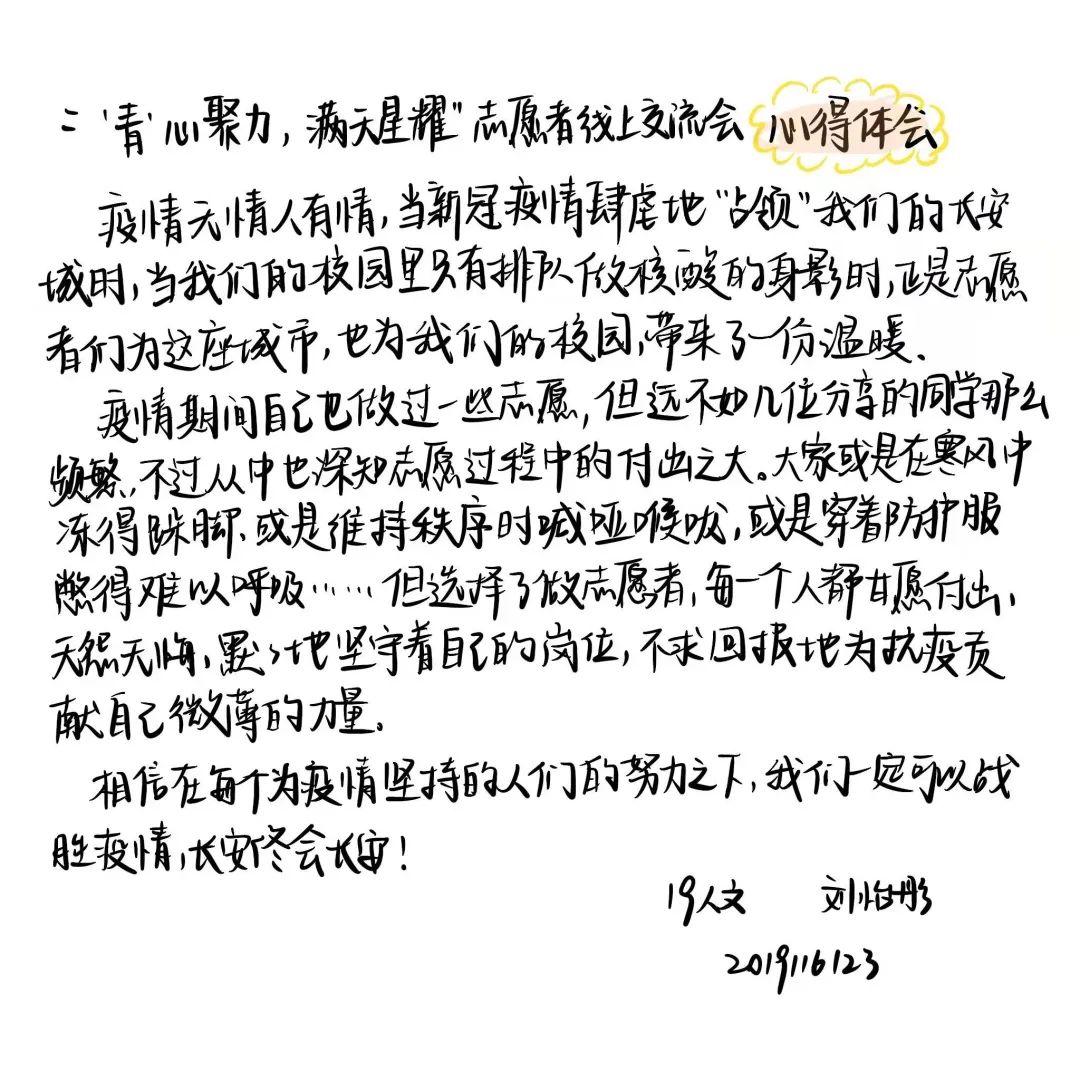 ="青'心聚力，满天星耀"志愿者线上交流会 心得体会
疫情无情人有情，当新冠疫情肆虐地"占领"我们的长安
城时，当我们的校园里只有排队做核酸的身影时，正是志愿
者们为这座城市，也为我们的校园，带来了一份温暖。
疫情期间自己也做过一些志愿，但远不如几位分享的同学那么
频繁，不过从中也深知志愿过程中的付出之大。大家或是在寒风中
冻得跺脚、或是维持秩序时喊哑喉咙，或是穿着防护服
憋得难以呼吸……但选择了做志愿者，每一个人都甘愿付出、
无怨无悔，默々地坚守着自己的岗位，不求回报地为抗疫贡
献自己微薄的力量。
相信在每个为疫情坚持的人们的努力之下，我们一定可以战
胜疫情，长安佟会长安！
19人文 刘怡彤
2019116123